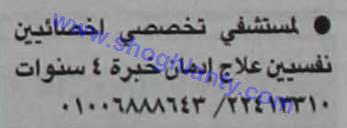 ● لمستشفي تخصصي اخصائيين
نفسيين علاج إدمان خبرة ٤ سنوات
٠١٠٠٦٨٨٨٦٤٣/٢٢٤١٣٣١٠
www.shoghlanty.com